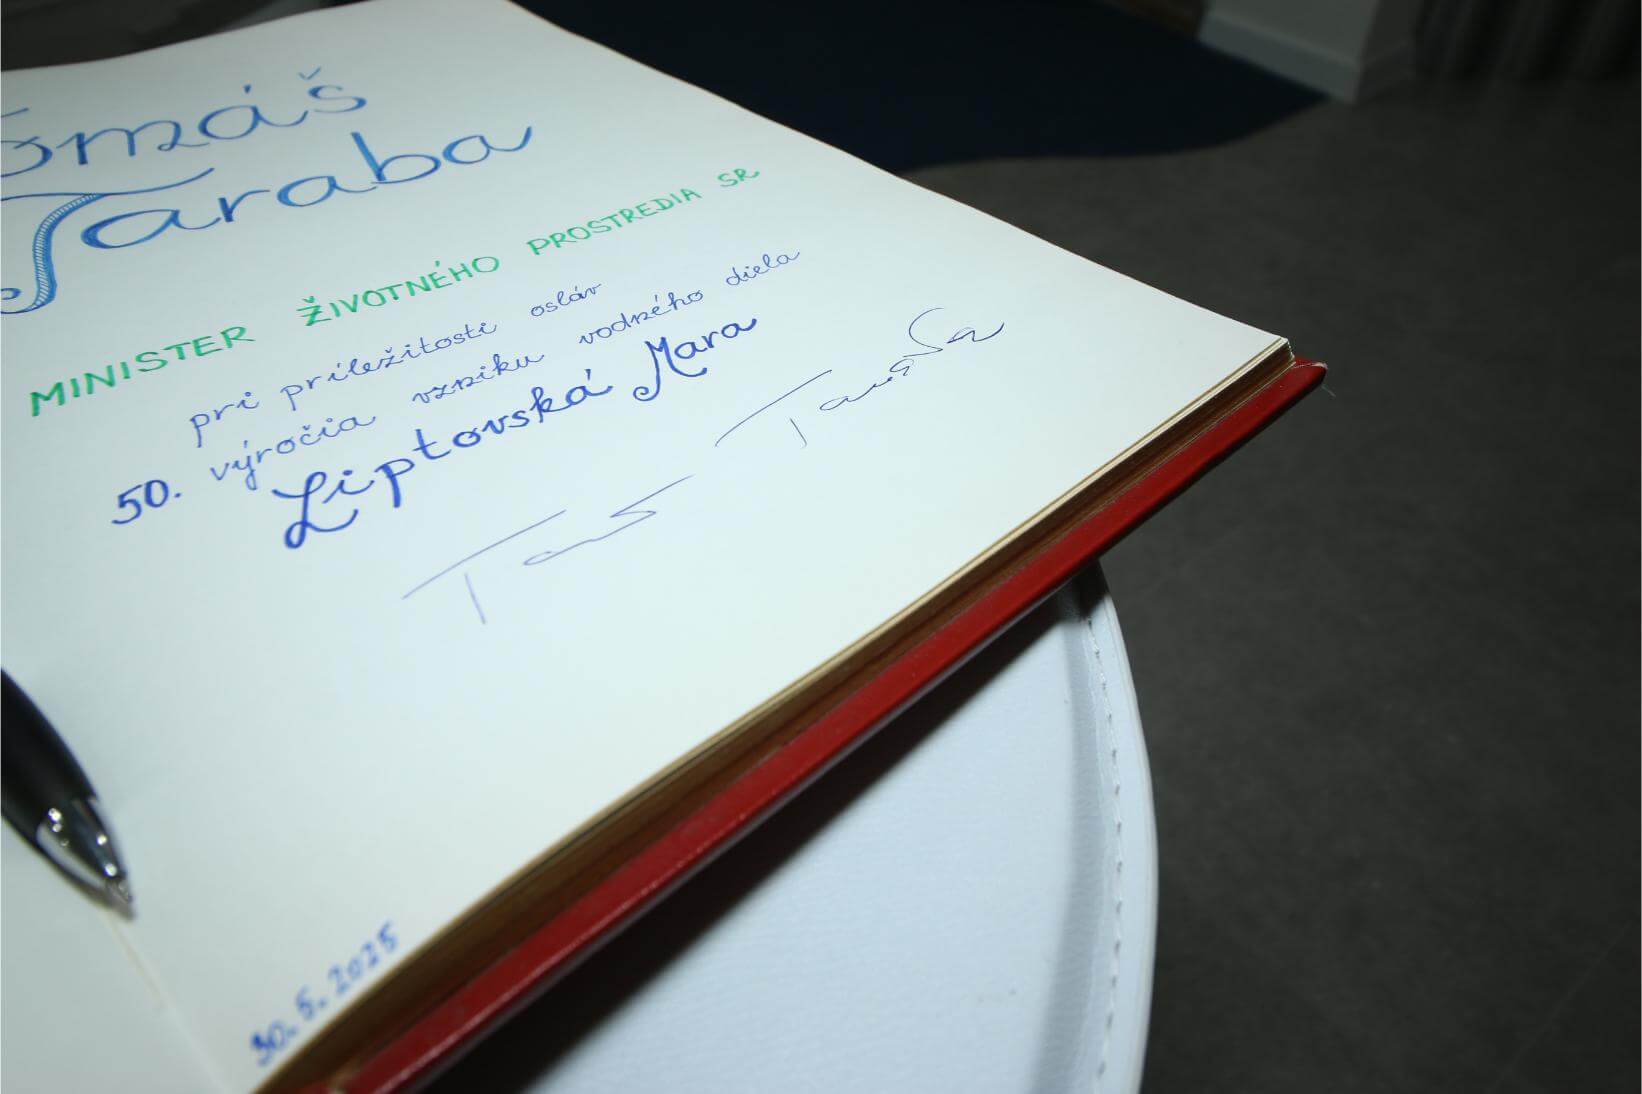 omáš
Taraba
MINISTER ŽIVOTNÉHO PROSTREDIA SR
pri príležitosti osláv
50. výročia vzniku vodného diela
Liptovská Mara
Taraba
30.5.2025